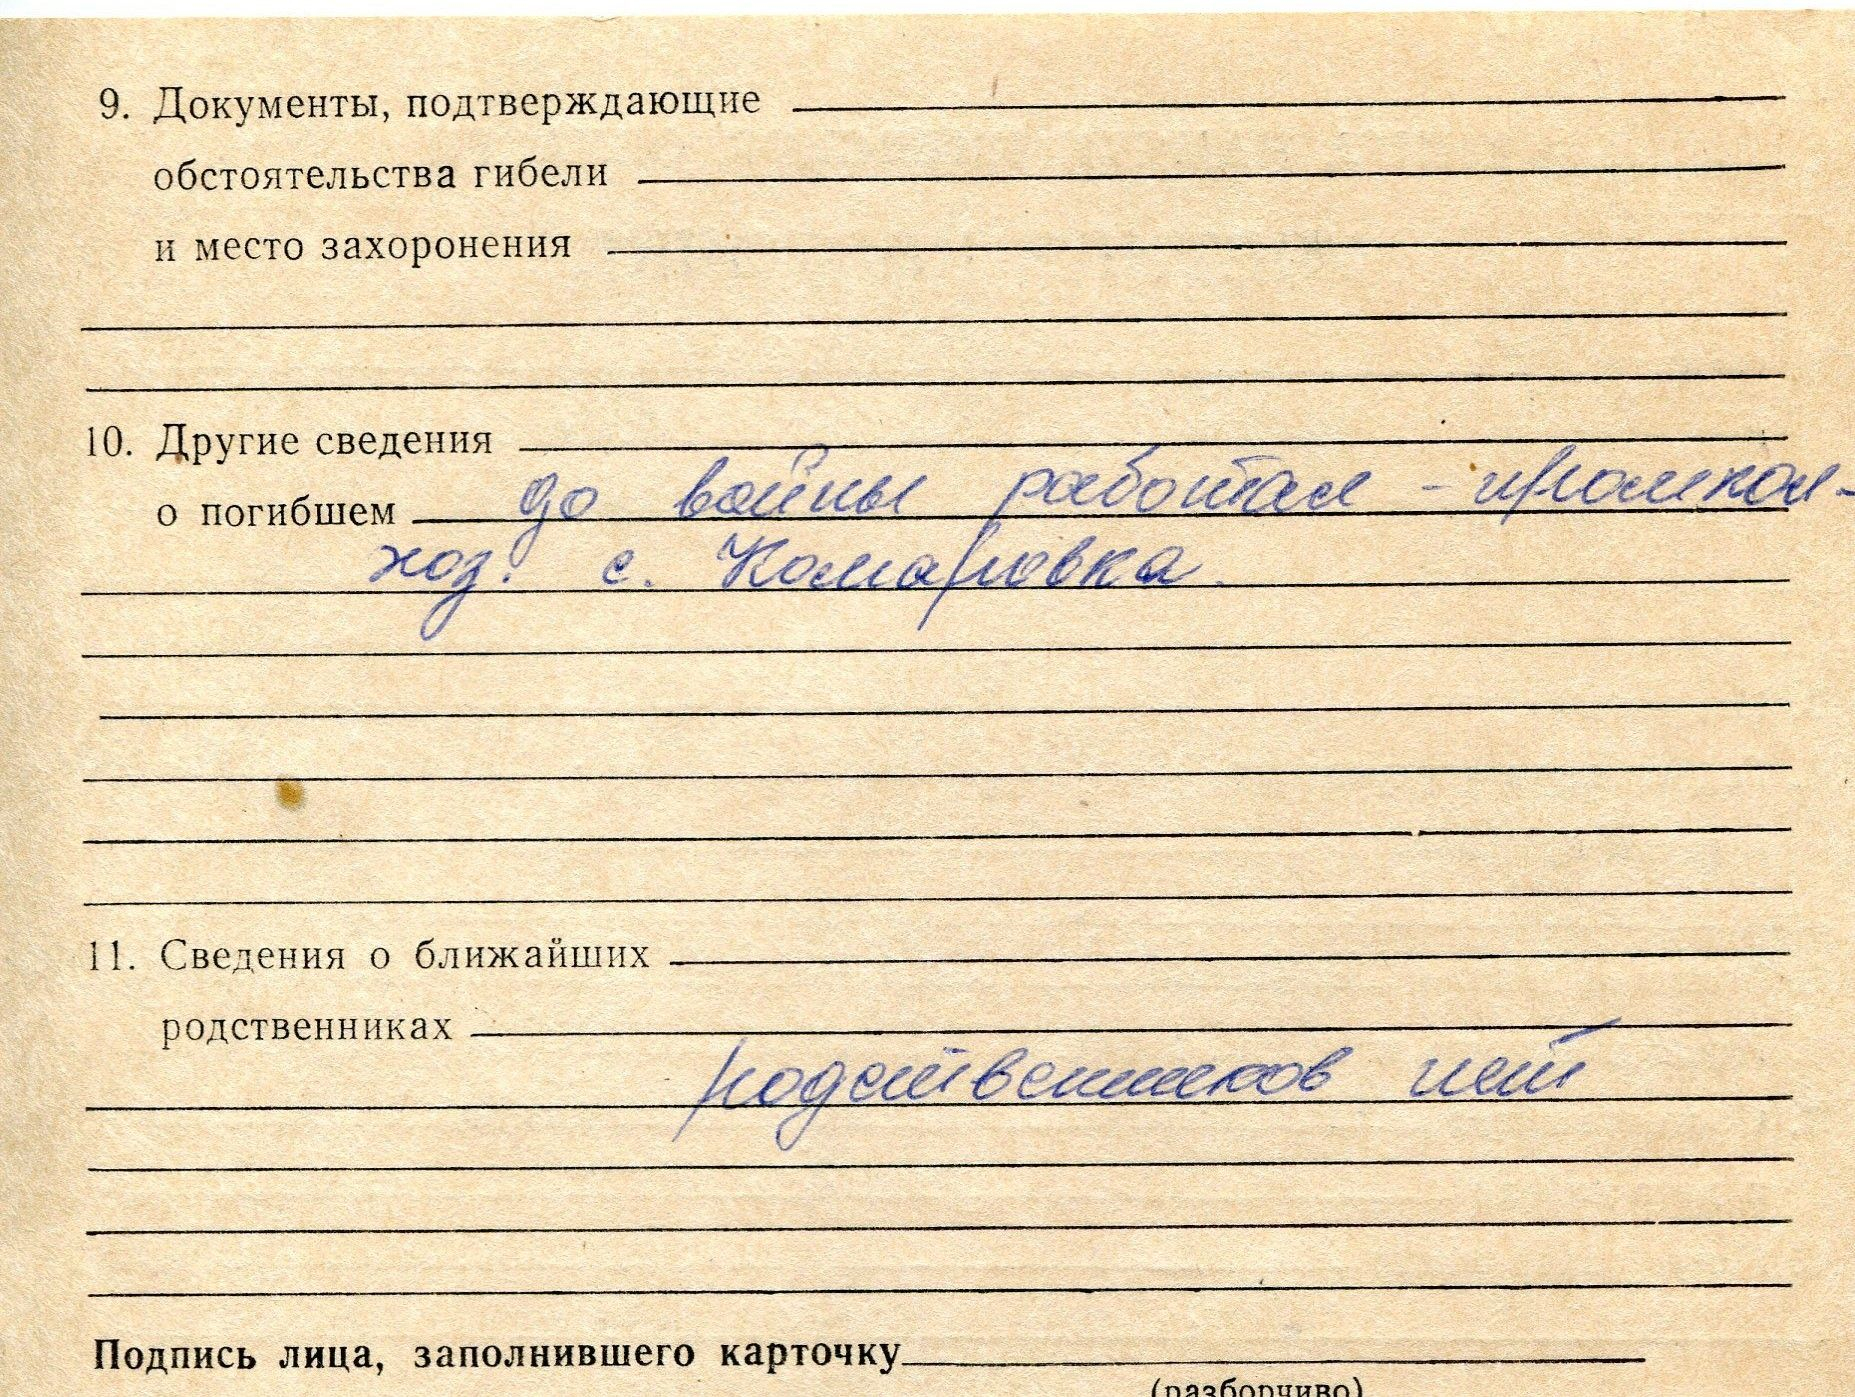 9. Документы, подтверждающие
обстоятельства гибели
и место захоронения
10. Другие сведения
о погибшем до войны работал - промкол-
хоз. с. Комаровка.
11. Сведения о ближайших
родственниках
родственников нет
Подпись лица, заполнившего карточку
(разборчиво)